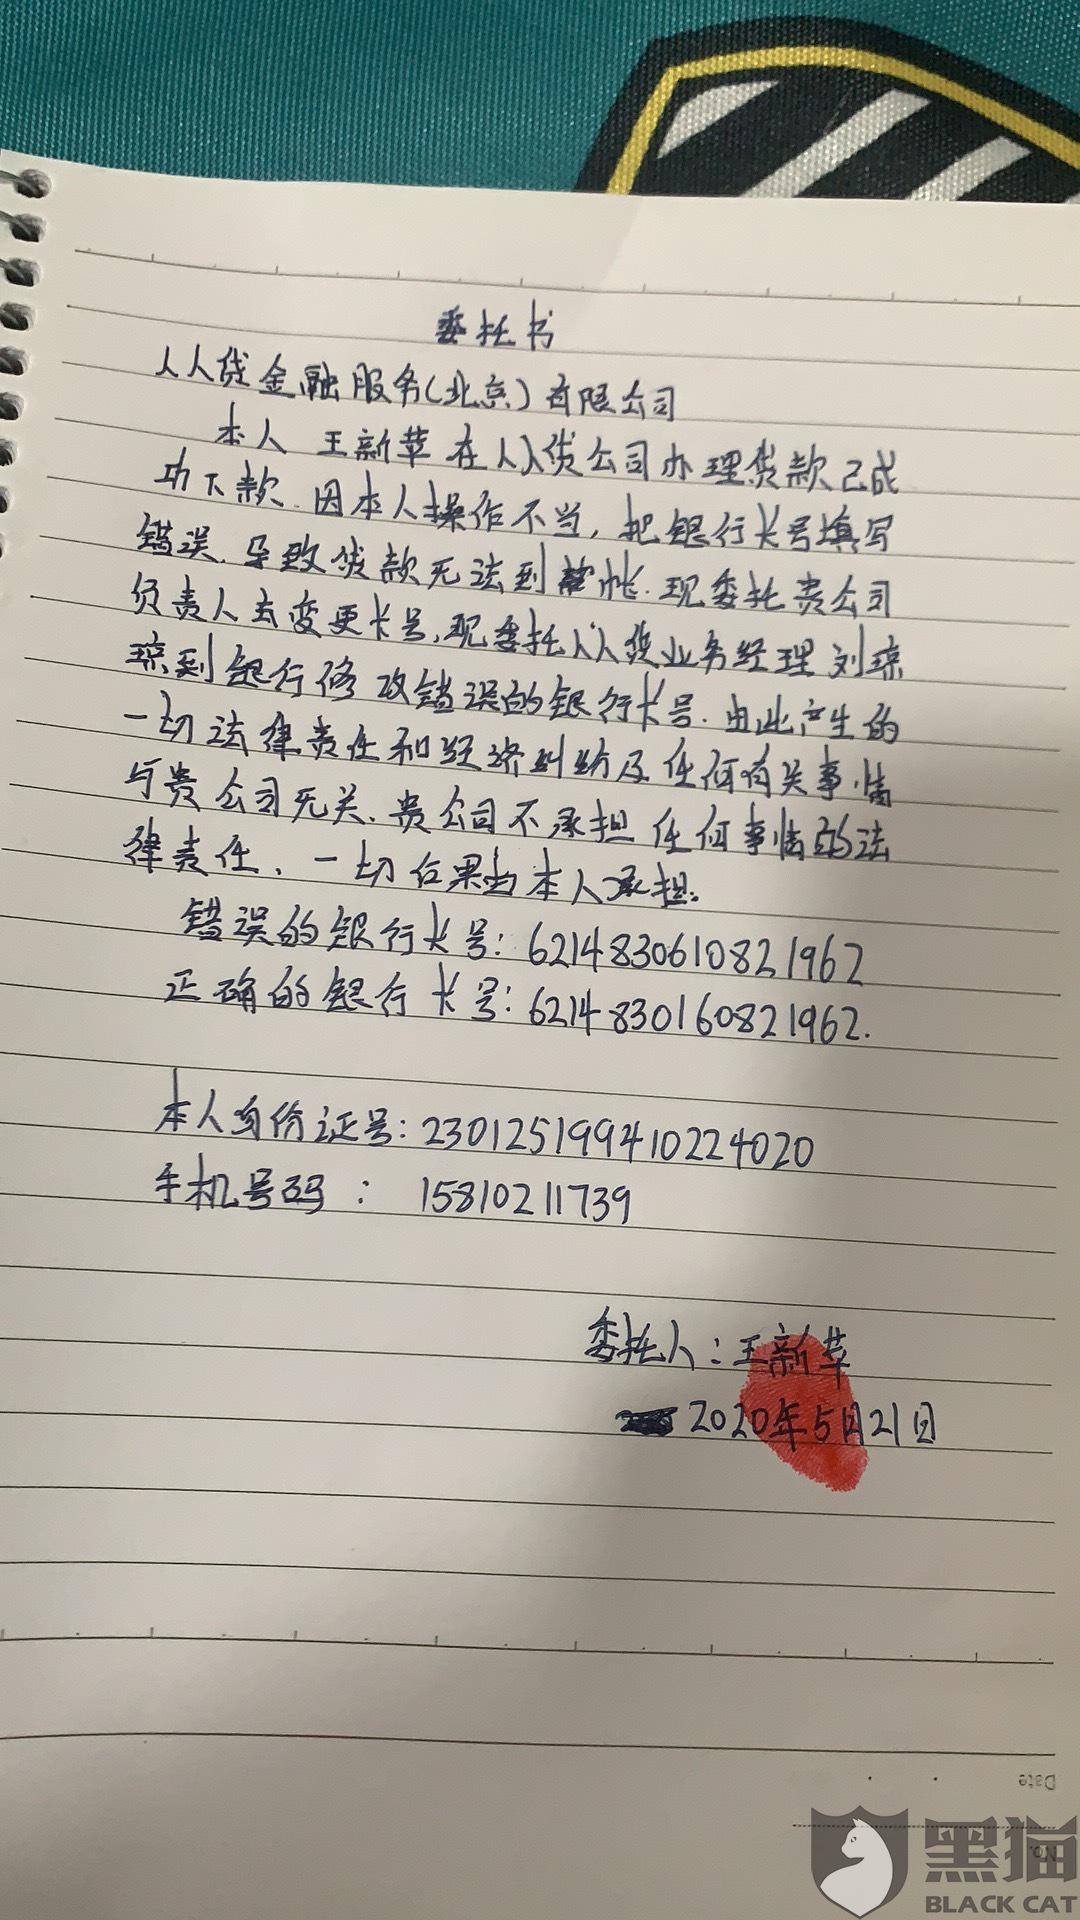 委托书
人人贷金融服务(北京)有限公司
本人 王新苹 在人人贷公司办理贷款已成
功下款.因本人操作不当,把银行卡号填写
错误.导致贷款无法到帐.现委托贵公司
负责人去变更卡号,现委托人人贷业务经理刘琼
琼到银行修改错误的银行卡号.由此产生的
一切法律责任和经济纠纷及任何有关事情
与贵公司无关、贵公司不承担任何事情的法
律责任、一切后果由本人承担.
错误的银行卡号:6214830610821962
正确的银行卡号:6214830160821962.
本人身份证号:230125199410224020
手机号码 : 15810211739
委托人:王新苹
2020年5月21日
Date
No.
黑猫
BLACK CAT